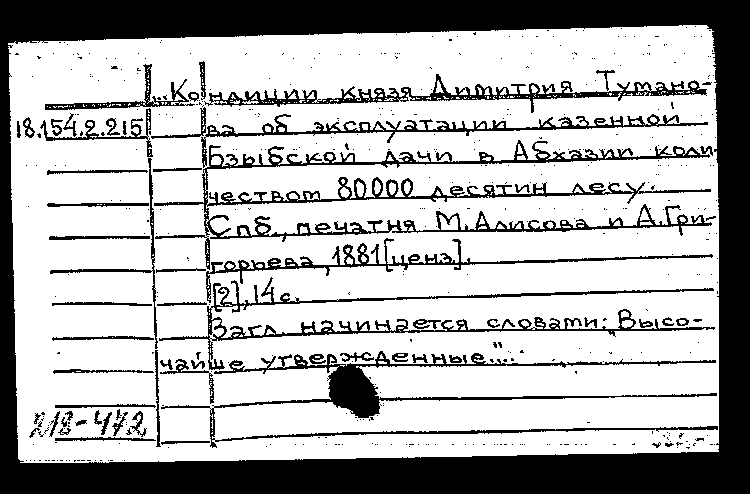 ...Кондиции князя Димитрия Тумано-
18.154.2.215 ва об эксплуатации казенной
Бзыбской дачи в Абхазии коли-
чеством 80000 десятин лесу.
Спб., печатня М.Алисова и А.Гри-
горьева, 1881[ценз].
[2],14 с.
Загл. начинается словами: "Высо-
чайше утвержденные"...
218-472